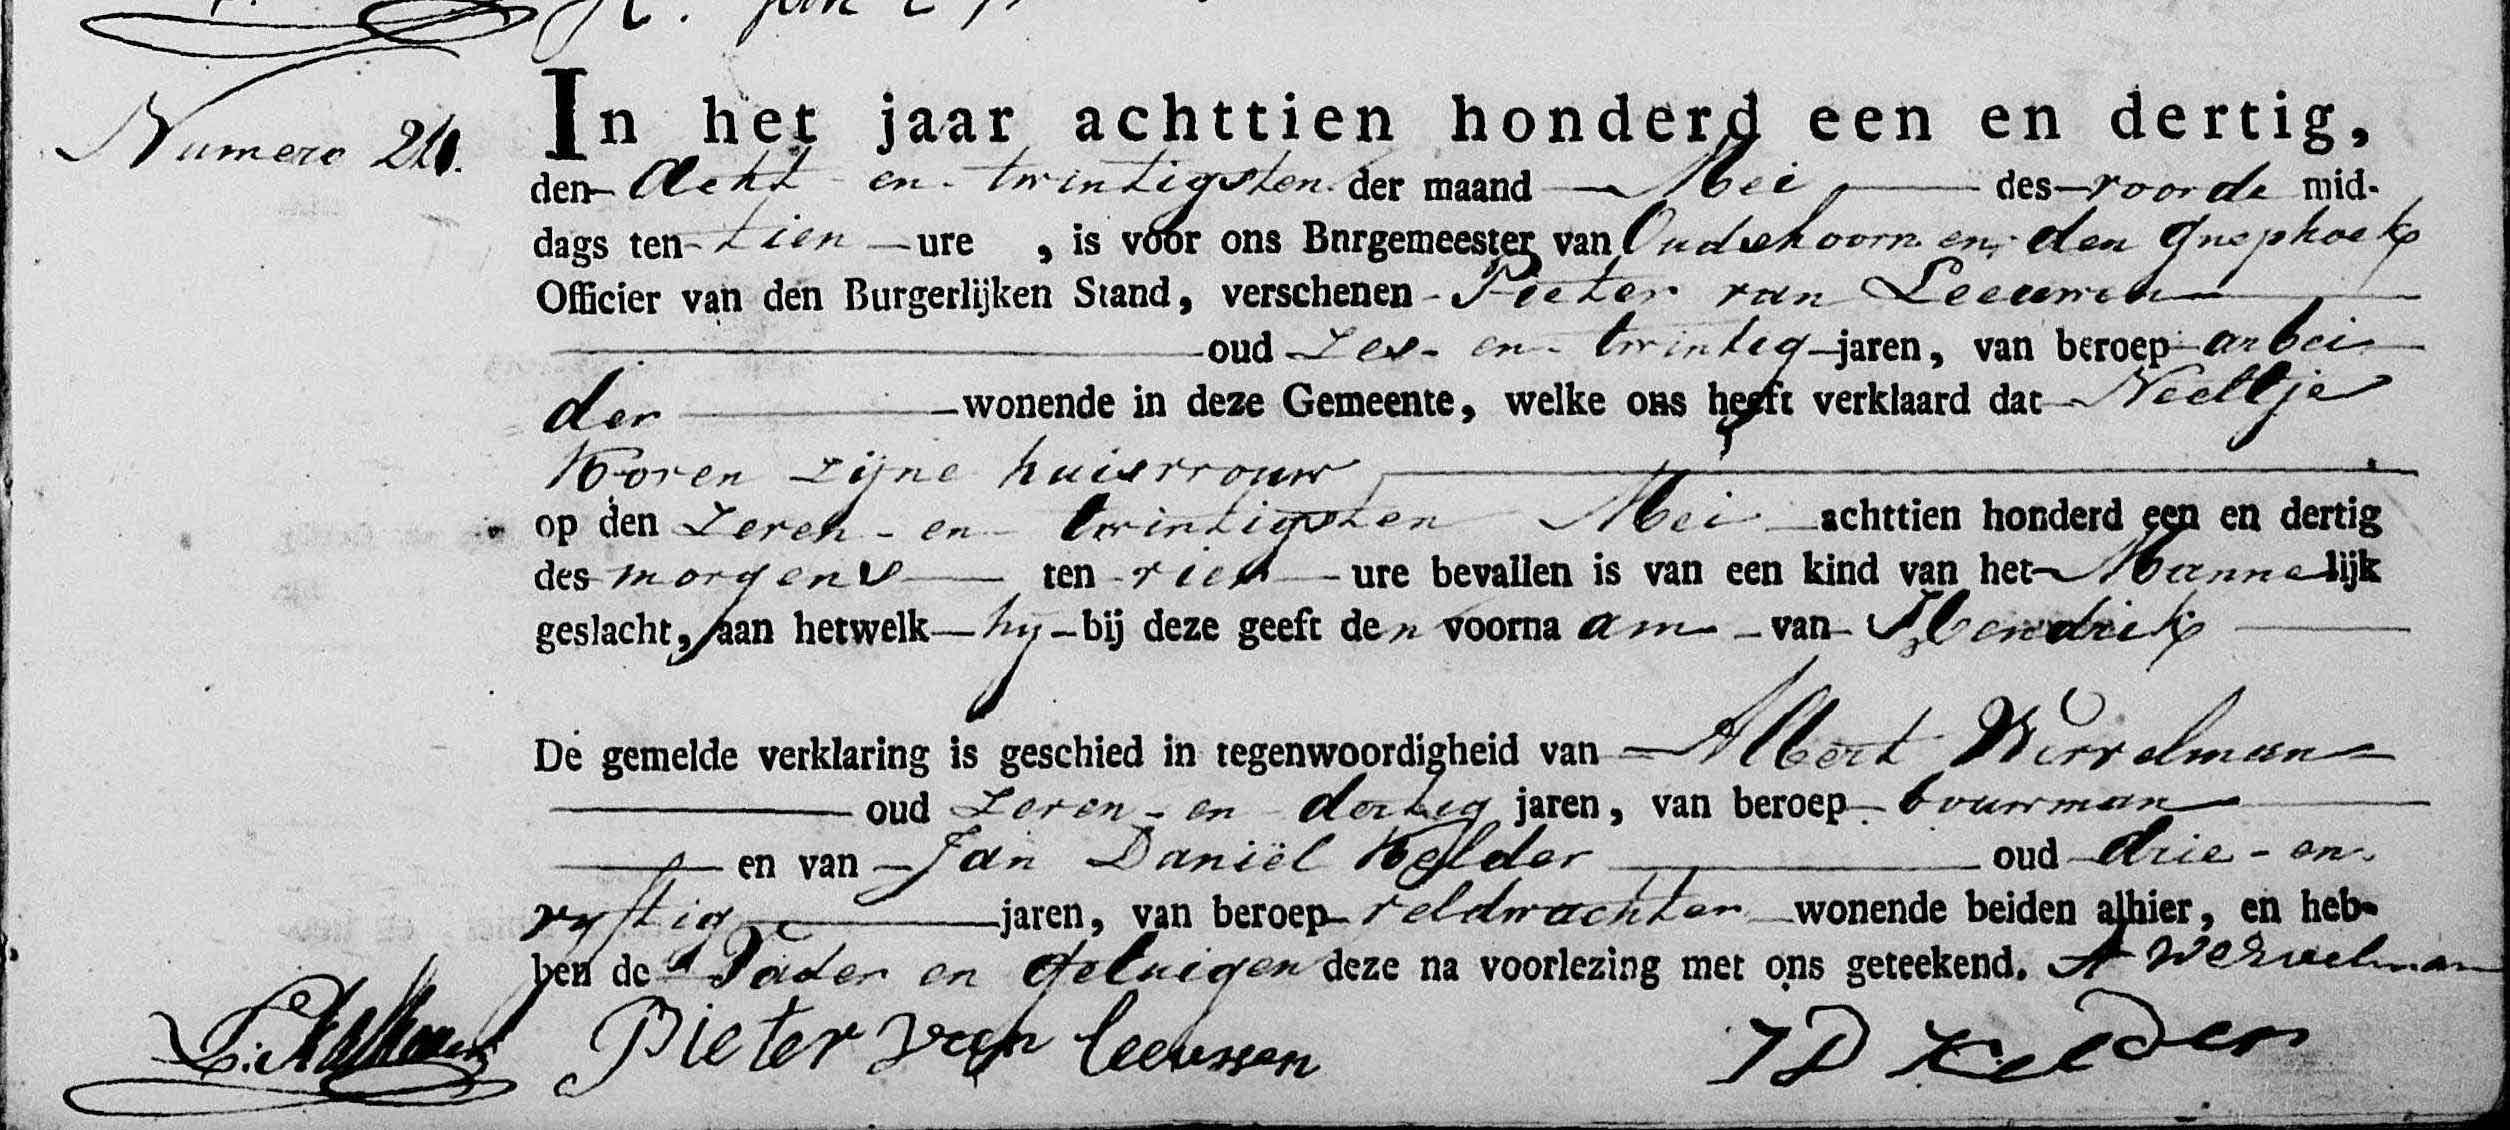 Numero 26.
In het jaar achttien honderd een en dertig,
den Acht en twintigsten der maand Mei des voorde mid-
dags ten tien ure , is voor ons Bnrgemeester van Oudshoorn en den Gnephoek
Officier van den Burgerlijken Stand, verschenen Pieter van Leeuwen
oud Zes en twintig jaren, van beroep arbei
der wonende in deze Gemeente, welke ons heeft verklaard dat Neeltje
Koren zijne huisvrouw
op den Zeven en twintigsten Mei achttien honderd een en dertig
des morgens ten vier ure bevallen is van een kind van het Mannelijk
geslacht, aan hetwelk hij bij deze geeft den voornaam van Hendrik
De gemelde verklaring is geschied in tegenwoordigheid van Albert Wervelman
oud Zeven en dertig jaren, van beroep bouwman
en van Jan Daniël Kelder oud drie en
vyftig jaren, van beroep veldwachter wonende beiden alhier, en heb-
ben de Vader en Getuigen deze na voorlezing met ons geteekend. A Wervelman
Pieter van leeuwen J D Kelder